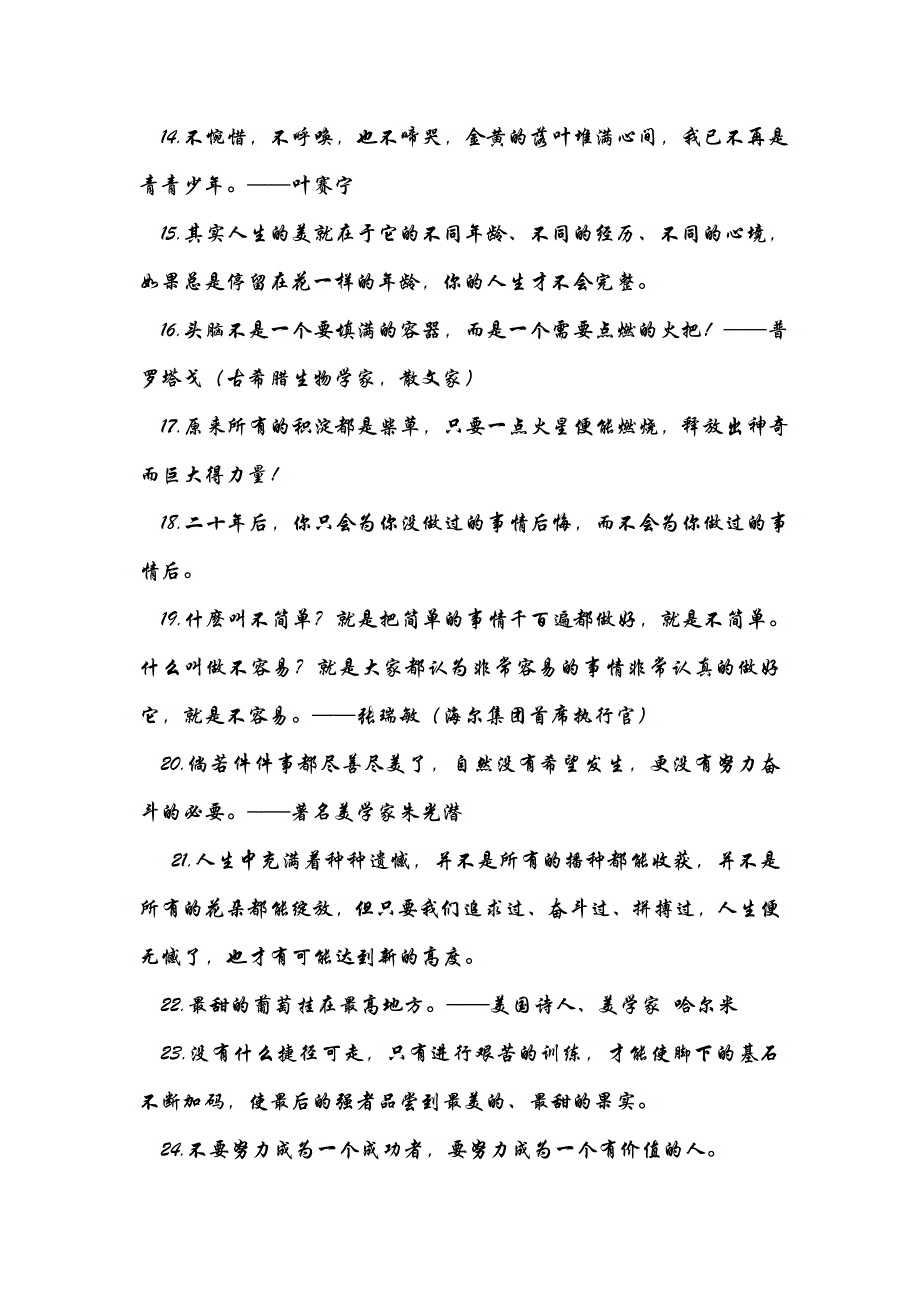 14.不惋惜，不呼唤，也不啼哭，金黄的落叶堆满心间，我已不再是
青青少年。——叶赛宁
15.其实人生的美就在于它的不同年龄、不同的经历、不同的心境，
如果总是停留在花一样的年龄，你的人生才不会完整。
16.头脑不是一个要填满的容器，而是一个需要点燃的火把！——普
罗塔戈（古希腊生物学家，散文家）
17.原来所有的积淀都是柴草，只要一点火星便能燃烧，释放出神奇
而巨大得力量！
18.二十年后，你只会为你没做过的事情后悔，而不会为你做过的事
情后。
19.什麽叫不简单？就是把简单的事情千百遍都做好，就是不简单。
什么叫做不容易？就是大家都认为非常容易的事情非常认真的做好
它，就是不容易。——张瑞敏（海尔集团首席执行官）
20.倘若件件事都尽善尽美了，自然没有希望发生，更没有努力奋
斗的必要。——著名美学家朱光潜
21.人生中充满着种种遗憾，并不是所有的播种都能收获，并不是
所有的花朵都能绽放，但只要我们追求过、奋斗过、拼搏过，人生便
无憾了，也才有可能达到新的高度。
22.最甜的葡萄挂在最高地方。——美国诗人、美学家 哈尔米
23.没有什么捷径可走，只有进行艰苦的训练，才能使脚下的基石
不断加码，使最后的强者品尝到最美的、最甜的果实。
24.不要努力成为一个成功者，要努力成为一个有价值的人。